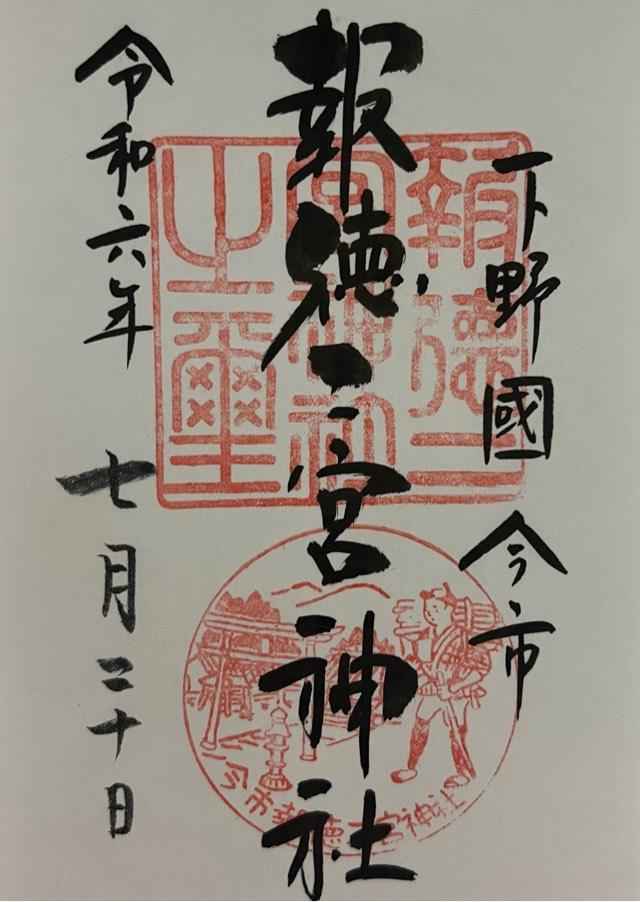 下野國 今市
報徳二宮神社
令和六年 七月二十日
報徳二
宮神社
之璽
今市報徳二宮神社